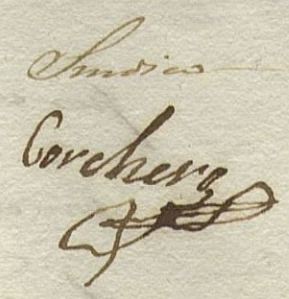 Sindico
Corchero